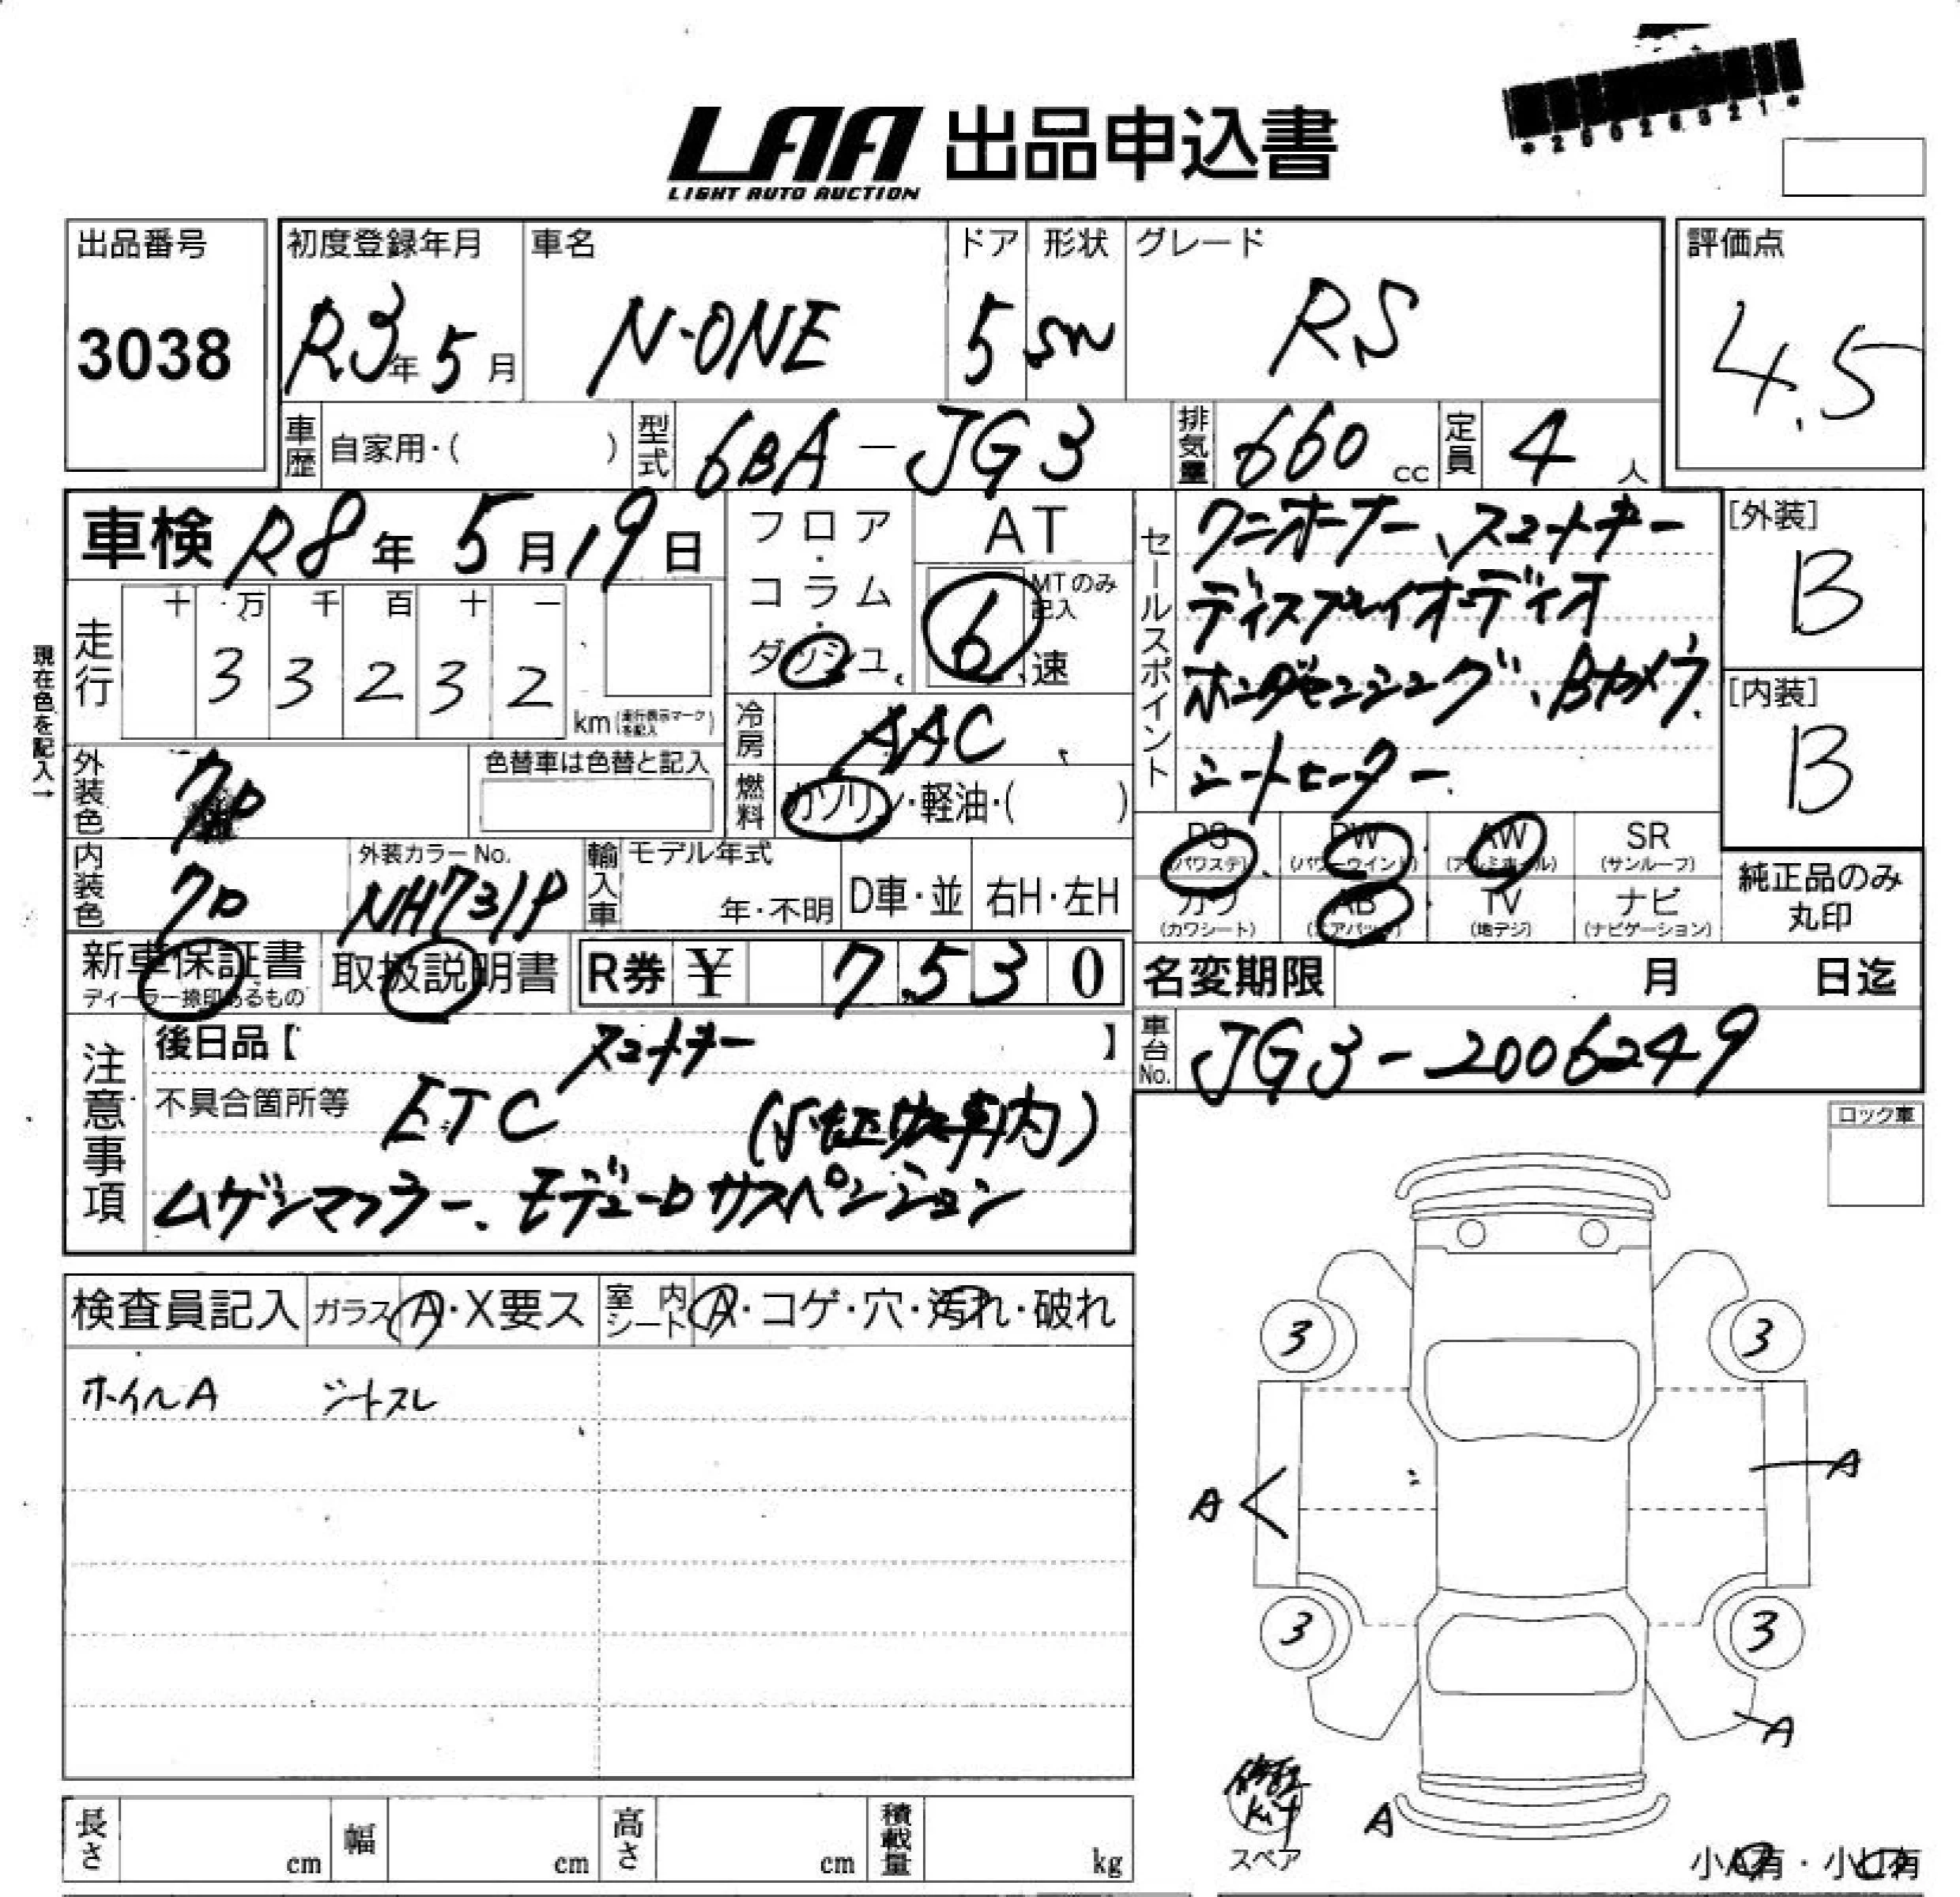 *26026321*
LAA 出品申込書
LIGHT AUTO AUCTION
出品番号 初度登録年月 車名 ドア 形状 グレード 評価点
3038 R3年5月 N-ONE 5 SW RS 4.5
車歴 自家用・( ) 型式 6BA-JG3 排気量 660cc 定員 4人
車検 R8年5月19日
フロア・コラム・ダッシュ
AT
6速 MTのみ記入
セールスポイント
ワンオーナー、スマートキー
ディスプレイオーディオ
ホンダセンシング、Bカメラ、
シートヒーター
[外装]
B
[内装]
B
現在色を記入→
走行 十 万 千 百 十 一
3 3 2 3 2 km(走行表示マークを記入)
冷房 AAC
外装色 クロ 色替車は色替と記入
燃料 ガソリン・軽油・( )
PS (パワステ) PW (パワーウインド) AW (アルミホイル) SR (サンルーフ)
カワ (カワシート) AB (エアバック) TV (地デジ) ナビ (ナビゲーション)
純正品のみ丸印
内装色 クロ 外装カラーNo. NH731P 輸入車 モデル年式 年・不明 D車・並 右H・左H
新車保証書 ディーラー捺印あるもの 取扱説明書 R券 ¥ 7,530
名変期限 月 日迄
車台No. JG3-2006249
注意事項
後日品【 スマートキー 】
不具合箇所等 ETC
ムゲンマフラー、モデューロサスペンション
ロック車
検査員記入 ガラス A・X要ス 室内シート A・コゲ・穴・汚れ・破れ
ホイルA シートスレ
3 3
A A
3 3
A
修理kit
スペア
A
小A有・小U有
長さ cm 幅 cm 高さ cm 積載量 kg